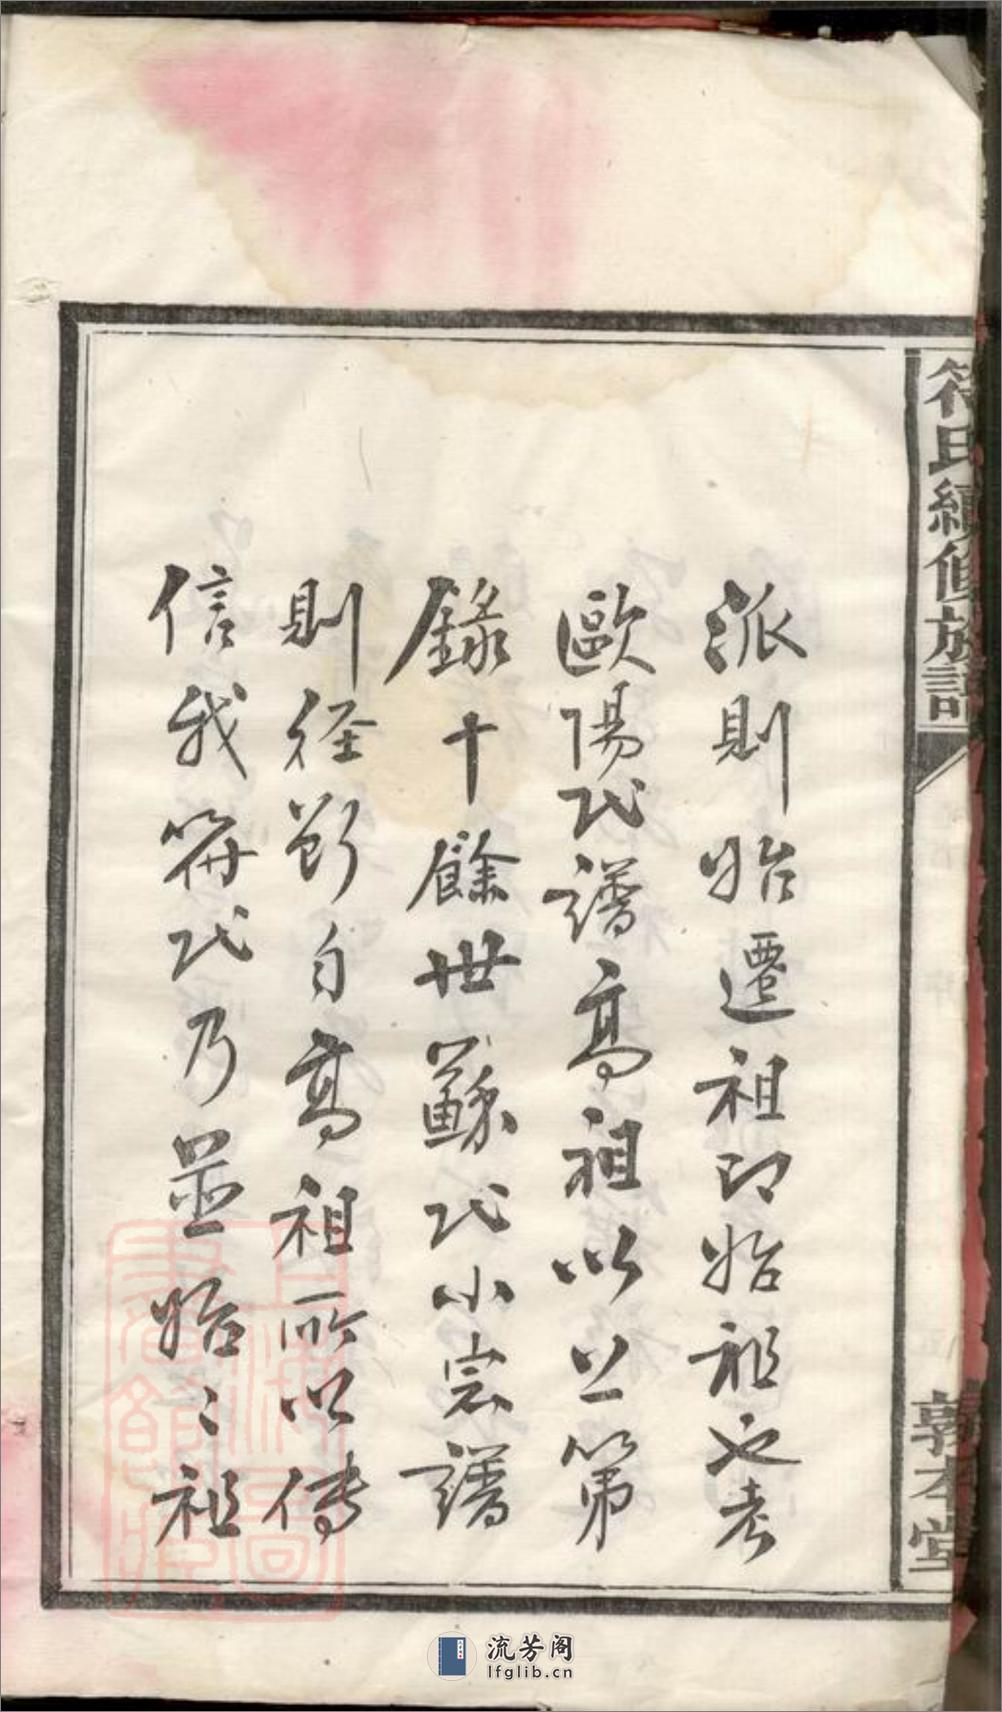 符氏續修族譜
敦本堂
派則始遷祖即始祖也考
歐陽氏譜高祖以上第
錄十餘世蘇氏小宗譜
則徑斷自高祖所以傳
信我符氏乃並始〻祖
上海圖書館藏
流芳阁
lfglib.cn